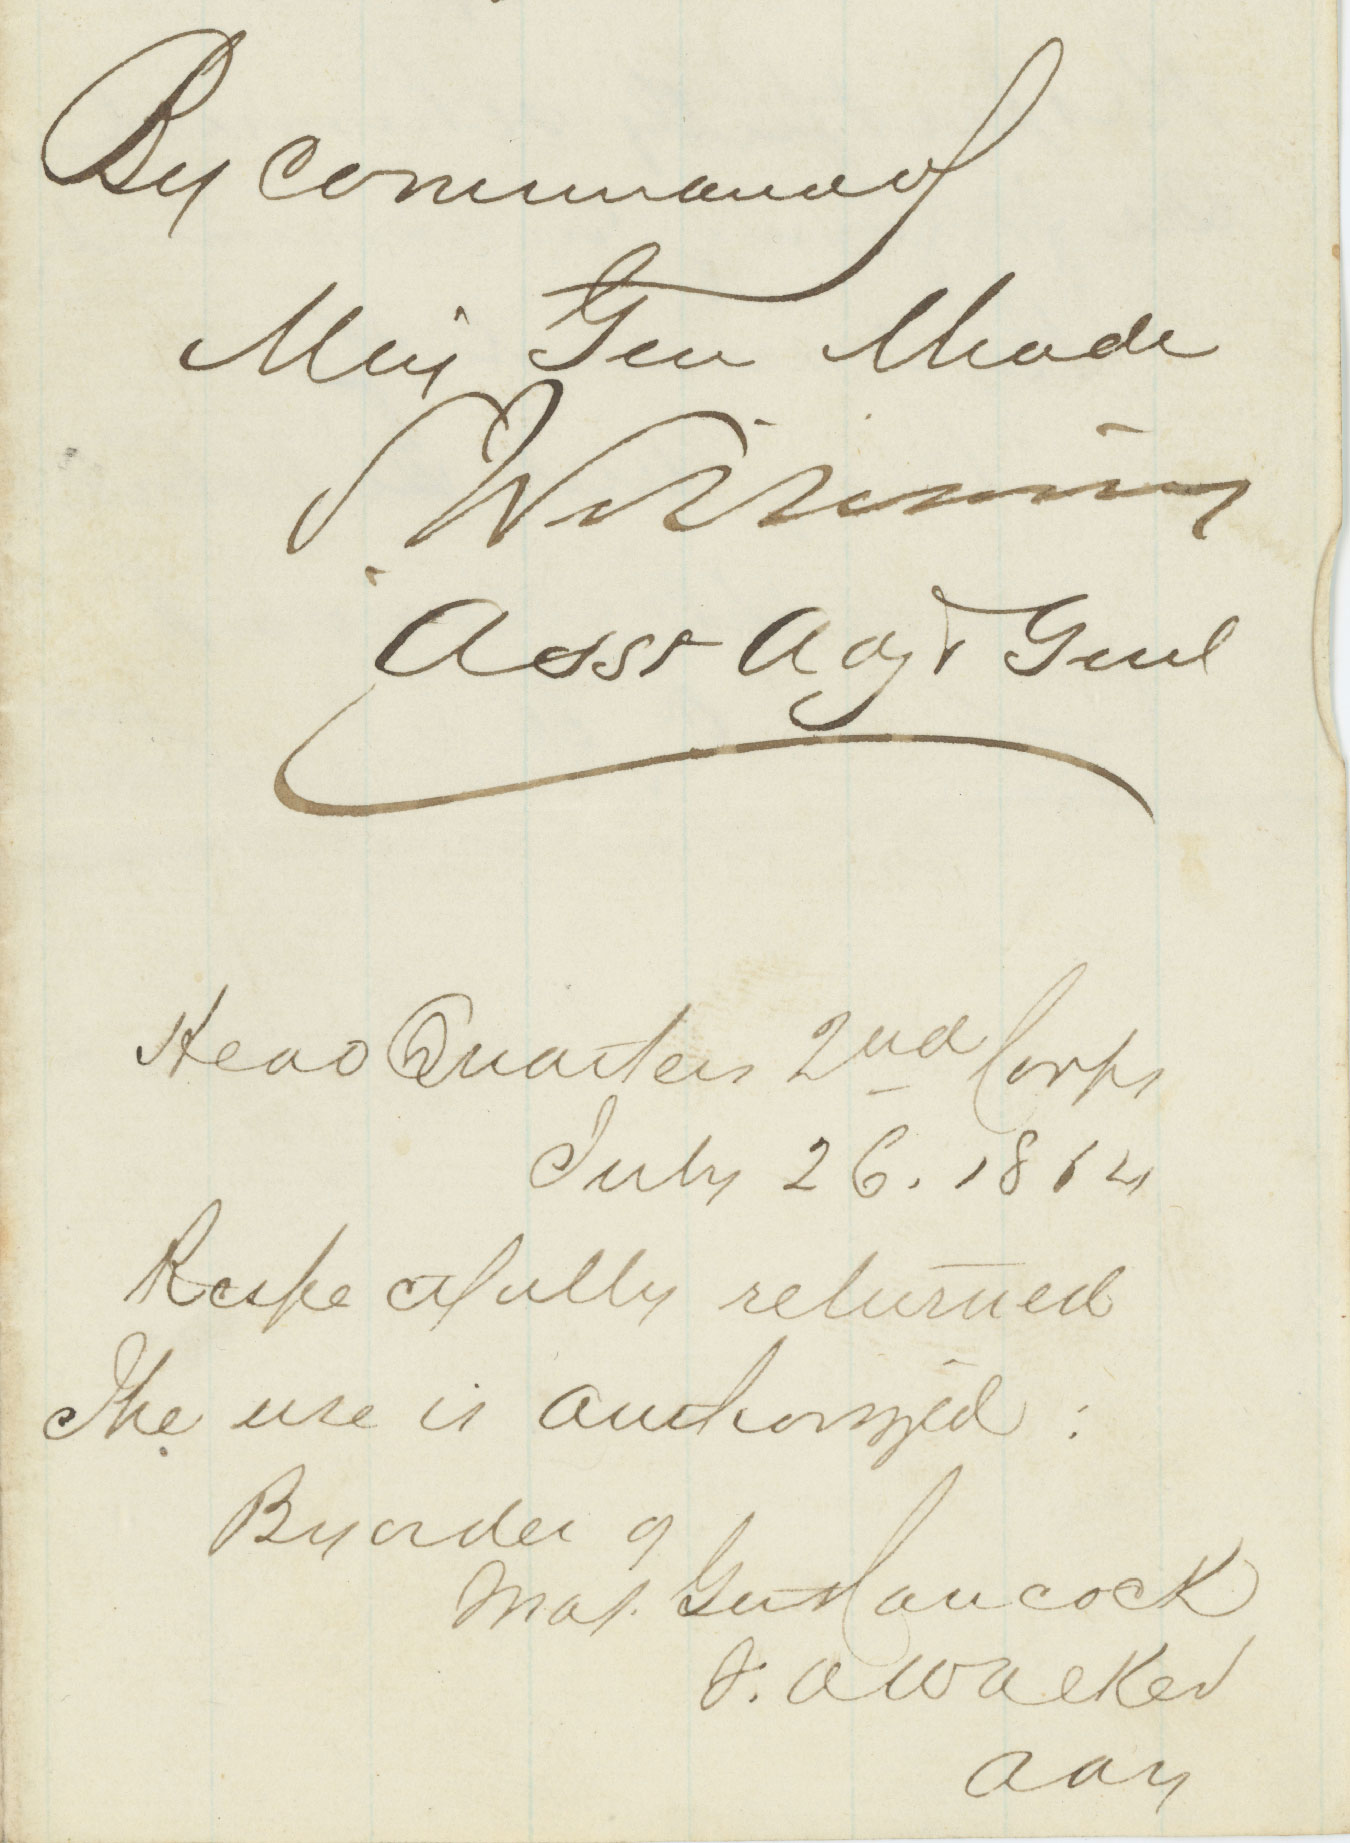 By command of
Maj Gen Meade
S Williams
Asst Adjt Genl
Head Quarters 2nd Corps
July 26. 1864
Respectfully returned
The use is authorized :
By order of
Maj. Gen Hancock
F. A Walker
AAG